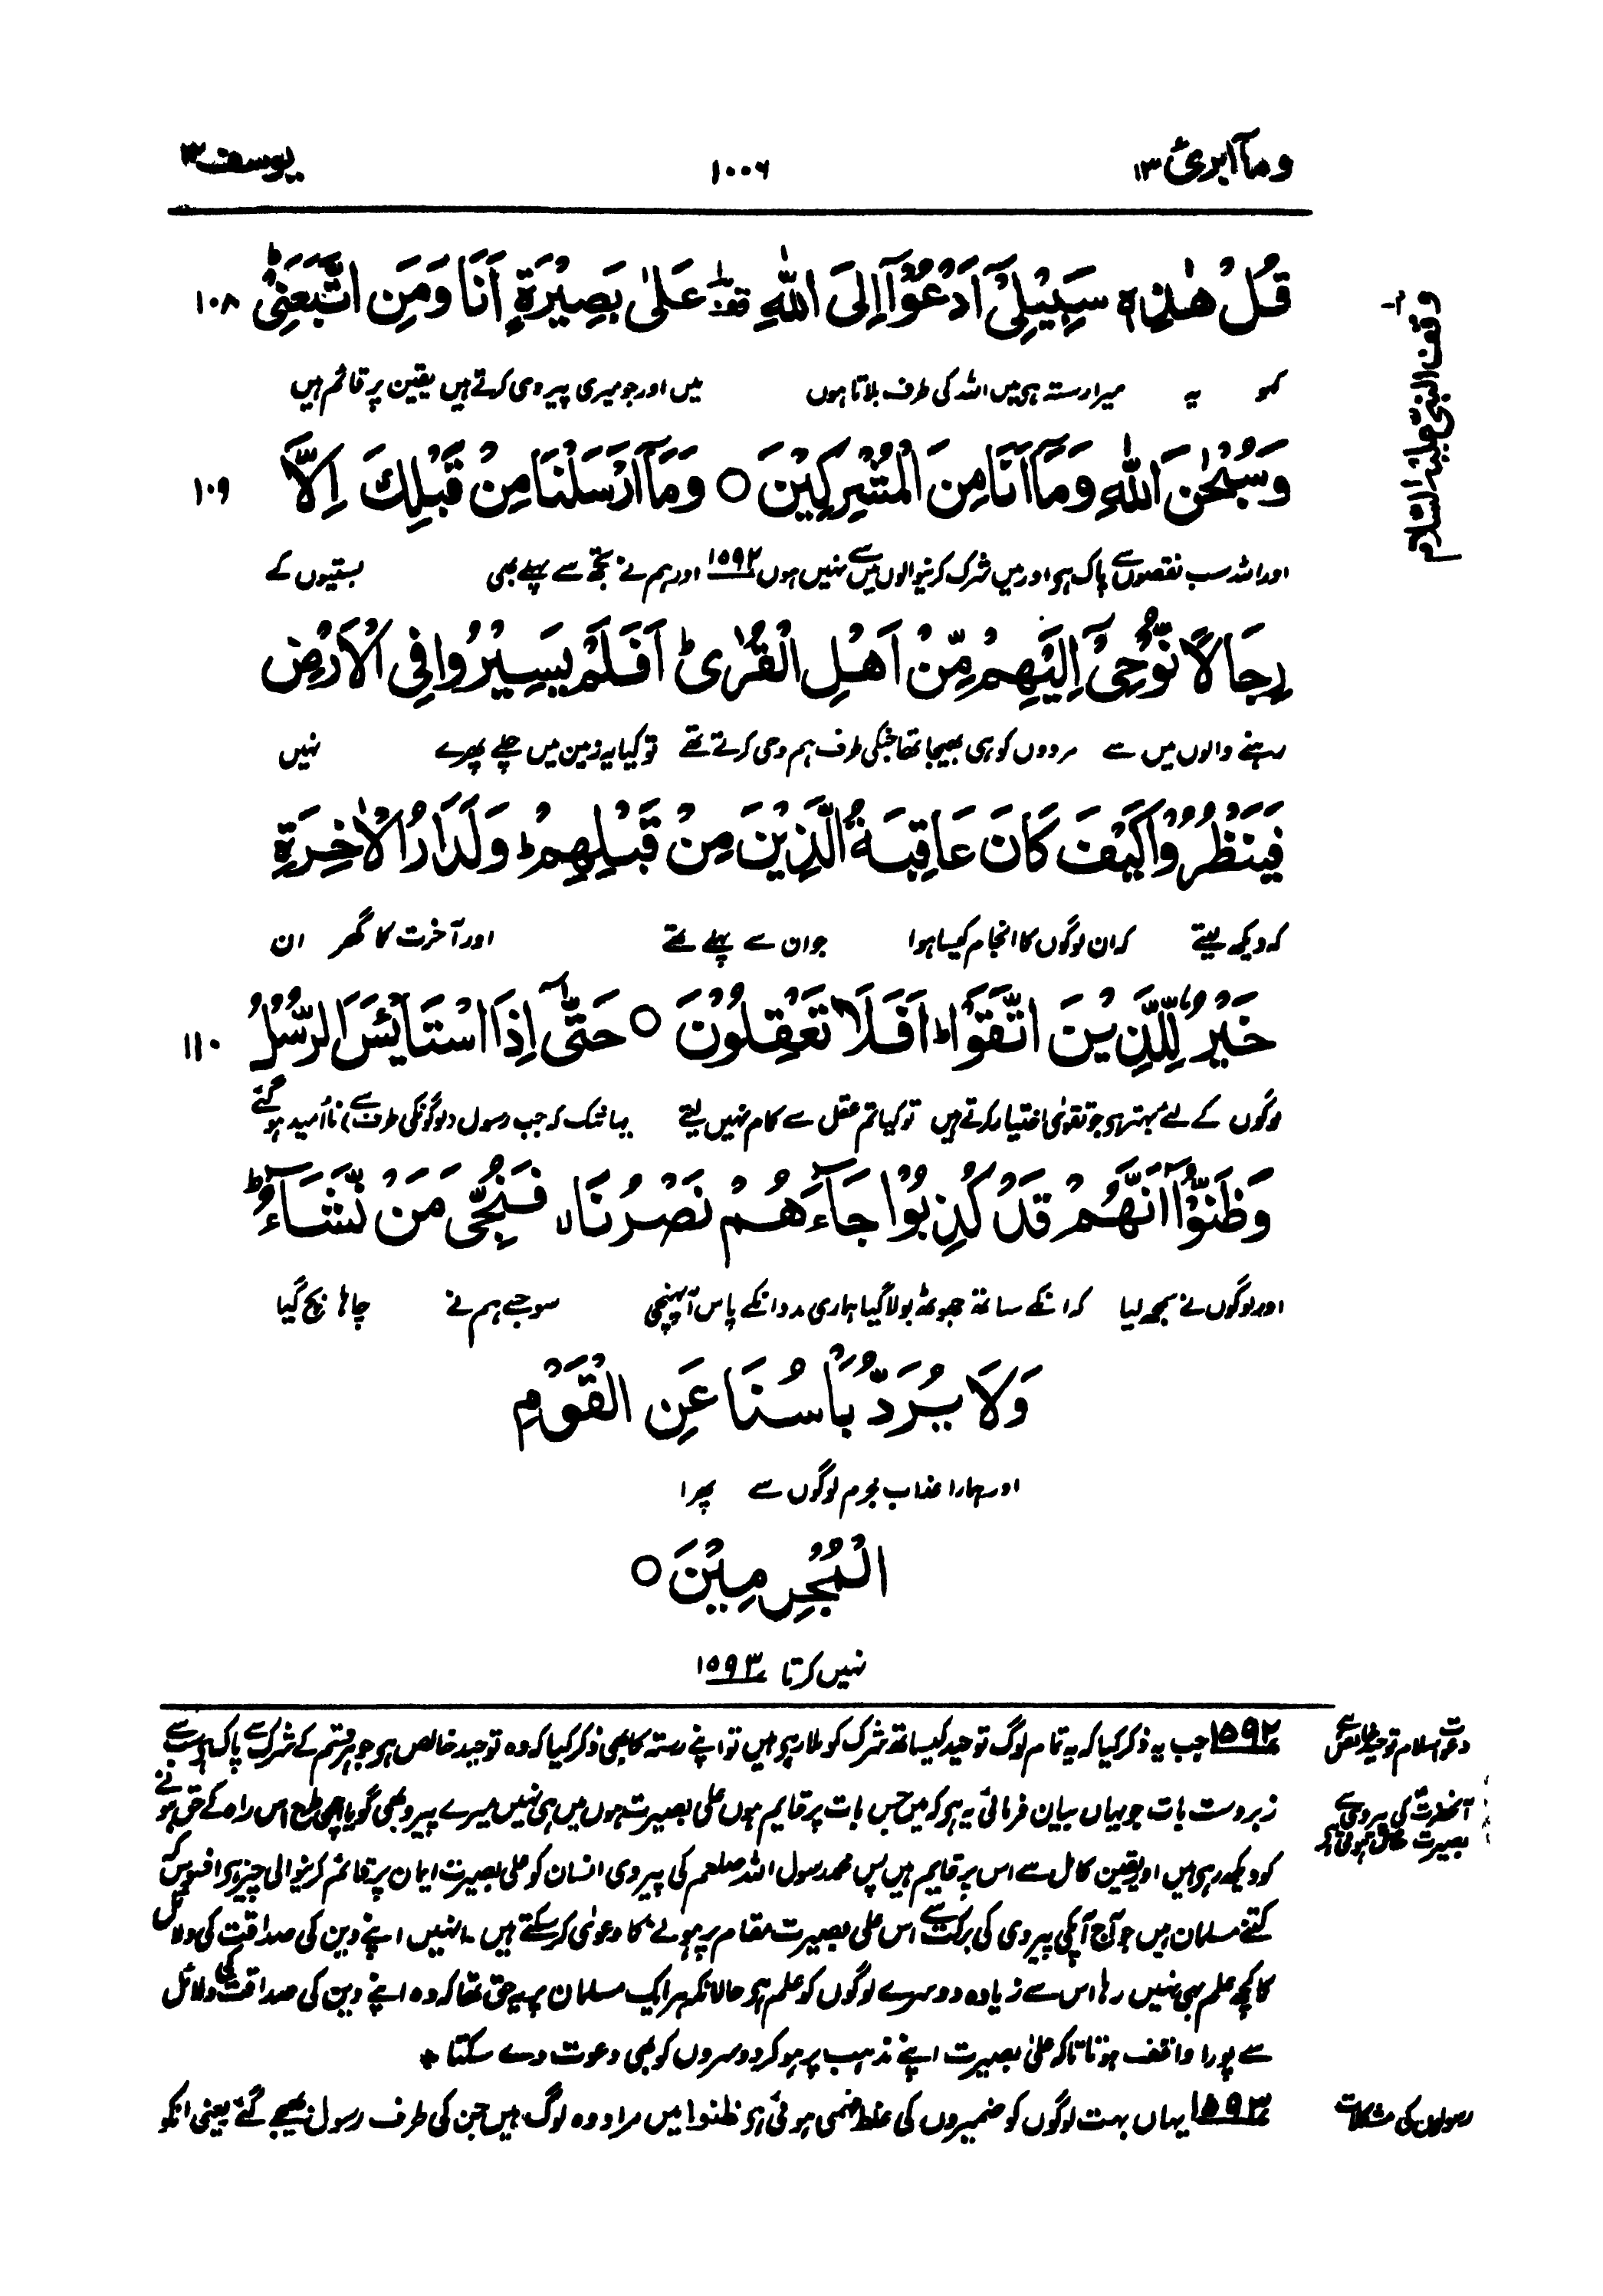 وما ابرئ ۱۳
۱۰۰۶
یوسف ۳
قُلْ هٰذِهٖ سَبِيْلِيْٓ اَدْعُوْٓا اِلَى اللّٰهِ ؔقف عَلٰى بَصِيْرَةٍ اَنَا وَمَنِ اتَّبَعَنِيْ ؕ ۱۰۸
کہو یہ میرا رستہ ہی میں اللہ کی طرف بلاتا ہوں میں اور جو میری پیروی کرتے ہیں یقین پر قائم ہیں
وقف النبی علیہ السلام
وَسُبْحٰنَ اللّٰهِ وَمَآ اَنَا مِنَ الْمُشْرِكِيْنَ ○ وَمَآ اَرْسَلْنَا مِنْ قَبْلِكَ اِلَّا ۱۰۹
اور اللہ سب نقصوں سے پاک ہی اور میں شرک کرنیوالوں میں سے نہیں ہوں ۱۵۹۲ اور ہم نے تجھ سے پہلے بھی بستیوں کے
رِجَالًا نُّوْحِيْٓ اِلَيْهِمْ مِّنْ اَهْلِ الْقُرٰى ؕ اَفَلَمْ يَسِيْرُوْا فِي الْاَرْضِ
رہنے والوں میں سے مردوں کو ہی بھیجا تھا جنکی طرف ہم وحی کرتے تھے تو کیا یہ زمین میں چلے پھرے نہیں
فَيَنْظُرُوْا كَيْفَ كَانَ عَاقِبَةُ الَّذِيْنَ مِنْ قَبْلِهِمْ ؕ وَلَدَارُ الْاٰخِرَةِ
کہ دیکھ لیتے کہ ان لوگوں کا انجام کیسا ہوا جو ان سے پہلے تھے اور آخرت کا گھر ان
خَيْرٌ لِّلَّذِيْنَ اتَّقَوْا ؕ اَفَلَا تَعْقِلُوْنَ ○ حَتّٰٓى اِذَا اسْتَايْـَٔسَ الرُّسُلُ ۱۱۰
لوگوں کے لئے بہتر ہی جو تقویٰ اختیار کرتے ہیں تو کیا تم عقل سے کام نہیں لیتے یہانتک کہ جب رسول (لوگونکی طرف سے) ناامید ہو گئے
وَظَنُّوْٓا اَنَّهُمْ قَدْ كُذِبُوْا جَآءَهُمْ نَصْرُنَا ۙ فَنُجِّيَ مَنْ نَّشَآءُ ؕ
اور لوگوں نے سمجھ لیا کہ انکے ساتھ جھوٹھ بولا گیا ہماری مدد انکے پاس آپہنچی سو جسے ہم نے چاہا بچ گیا
وَلَا يُرَدُّ بَاْسُنَا عَنِ الْقَوْمِ
اور ہمارا عذاب مجرم لوگوں سے پھرا
الْمُجْرِمِيْنَ ○
نہیں کرتا ۱۵۹۳
دعوت اسلام توحید خالص ہے
۱۵۹۲ جب یہ ذکر کیا کہ یہ تمام لوگ توحید کیساتھ شرک کو ملا رہی ہیں تو اپنے رستہ کا بھی ذکر کیا کہ وہ توحید خالص ہی جو ہر قسم کے شرک سے پاک ہے سب سے
آنحضرت کی پیروی سے بصیرت حاصل ہوتی ہے
زبردست بات جو یہاں بیان فرمائی یہ ہی کہ میں جس بات پر قایم ہوں علی بصیرت ہوں میں ہی نہیں میرے پیرو بھی گویا اچھی طرح اس راہ کے حق ہونے
کو دیکھ رہی ہیں اور یقین کامل سے اس پر قایم ہیں پس محمد رسول اللہ صلعم کی پیروی انسان کو علی بصیرت ایمان پر قائم کرنیوالی چیز ہی افسوس کہ
کتنے مسلمان ہیں جو آج آپکی پیروی کی برکت سے اس علی بصیرت مقام پر ہونے کا دعویٰ کر سکتے ہیں۔ انہیں اپنے دین کی صداقت کی دلائل
کا کچھ علم ہی نہیں رہا اس سے زیادہ دوسرے لوگوں کو علم ہی حالانکہ ہر ایک مسلمان پر یہ حق تھا کہ وہ اپنے دین کی صداقت کی دلائل
سے پورا واقف ہوتا تاکہ علیٰ بصیرت اپنے مذہب پر ہو کر دوسروں کو بھی دعوت دے سکتا *
رسولوں کی مشکلات
۱۵۹۳ یہاں بہت لوگوں کو ضمیروں کی غلط فہمی ہوئی ہی ظنوا میں مراد وہ لوگ ہیں جن کی طرف رسول بھیجے گئے یعنی انکو